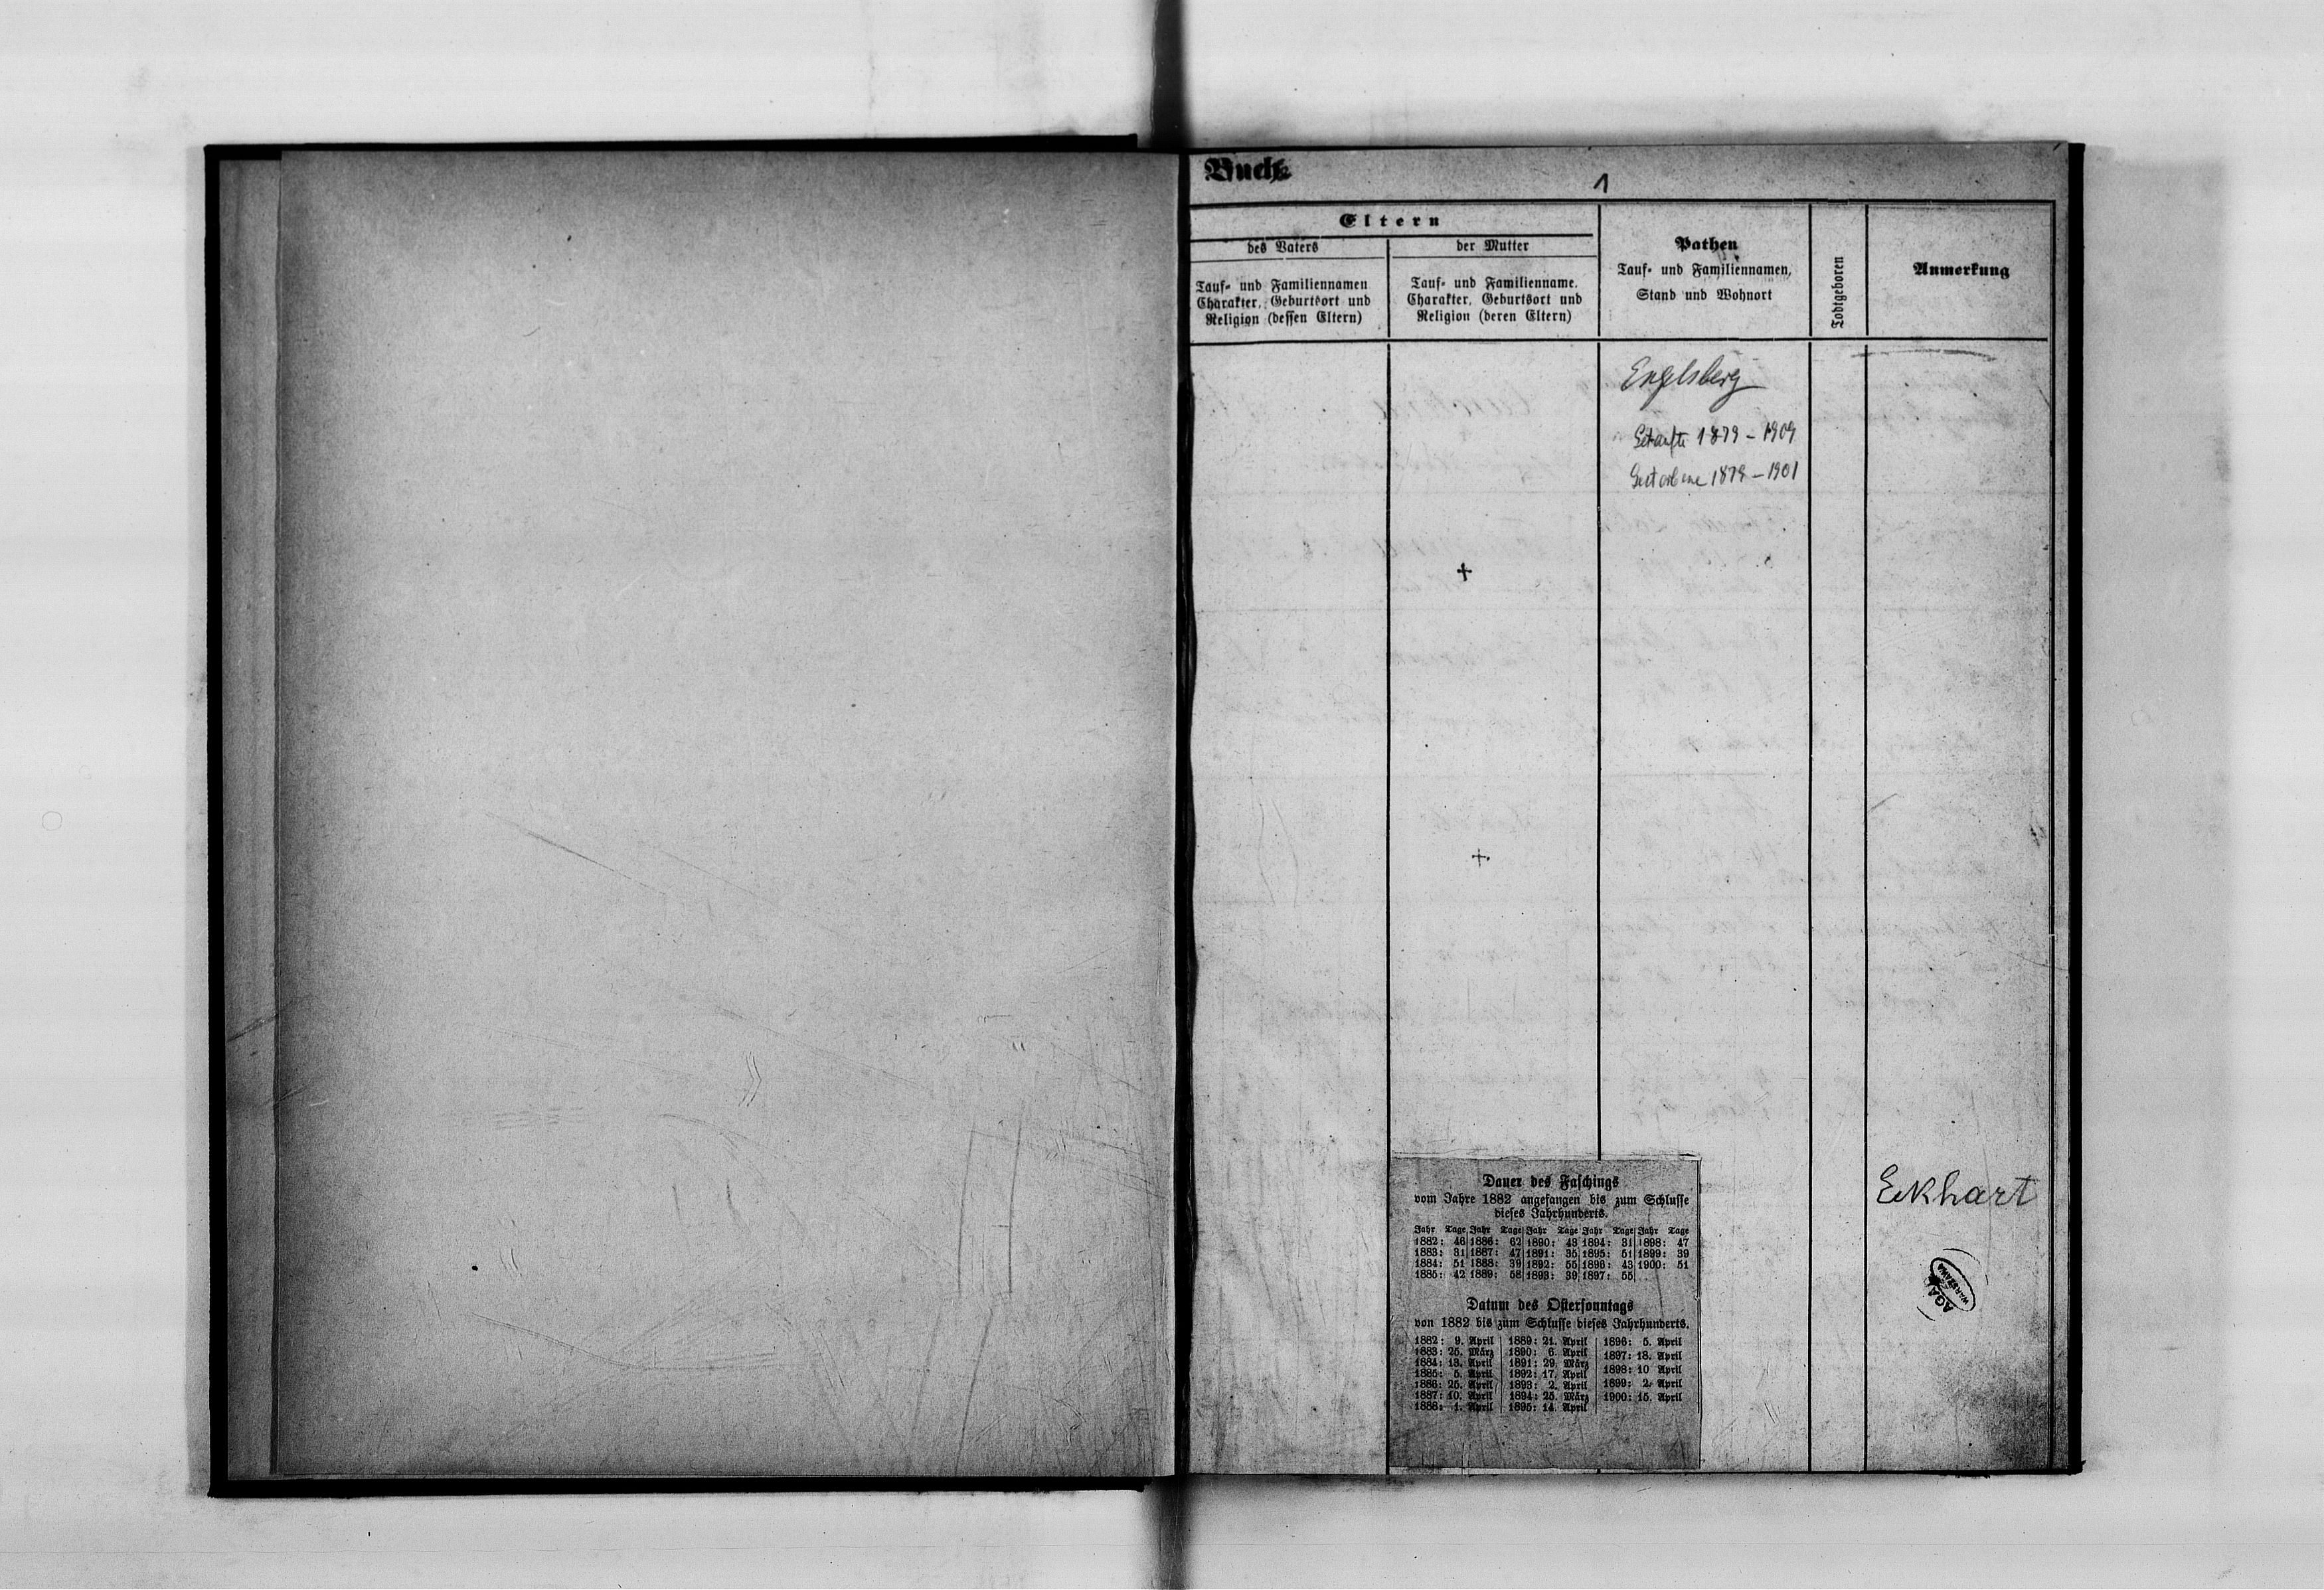 Buch
1
Eltern
des Vaters
der Mutter
Tauf- und Familiennamen
Charakter, Geburtsort und
Religion (dessen Eltern)
Tauf- und Familienname,
Charakter, Geburtsort und
Religion (deren Eltern)
Pathen
Tauf- und Familiennamen,
Stand und Wohnort
Todtgeboren
Anmerkung
Engelsberg
Getaufte 1879 - 1909
Gestorbene 1879 - 1901
+
+
Dauer des Faschings
vom Jahre 1882 angefangen bis zum Schlusse
dieses Jahrhunderts.
Jahr Tage Jahr Tage Jahr Tage Jahr Tage Jahr Tage
1882: 46 1886: 62 1890: 43 1894: 31 1898: 47
1883: 31 1887: 47 1891: 35 1895: 51 1899: 39
1884: 51 1888: 39 1892: 55 1896: 43 1900: 51
1885: 42 1889: 58 1893: 39 1897: 55
Datum des Ostersonntags
von 1882 bis zum Schlusse dieses Jahrhunderts.
1882: 9. April
1883: 25. März
1884: 13. April
1885: 5. April
1886: 25. April
1887: 10. April
1888: 1. April
1889: 21. April
1890: 6. April
1891: 29. März
1892: 17. April
1893: 2. April
1894: 25. März
1895: 14. April
1896: 5. April
1897: 18. April
1898: 10 April
1899: 2. April
1900: 15. April
Eckhart
AGAD
WARSZAWA